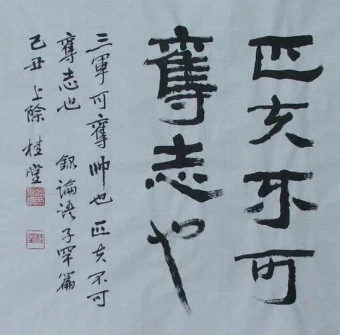 匹夫不可
奪志也
三軍可奪帥也 匹夫不可
奪志也 錄論语子罕篇
己丑 上除 桂堂